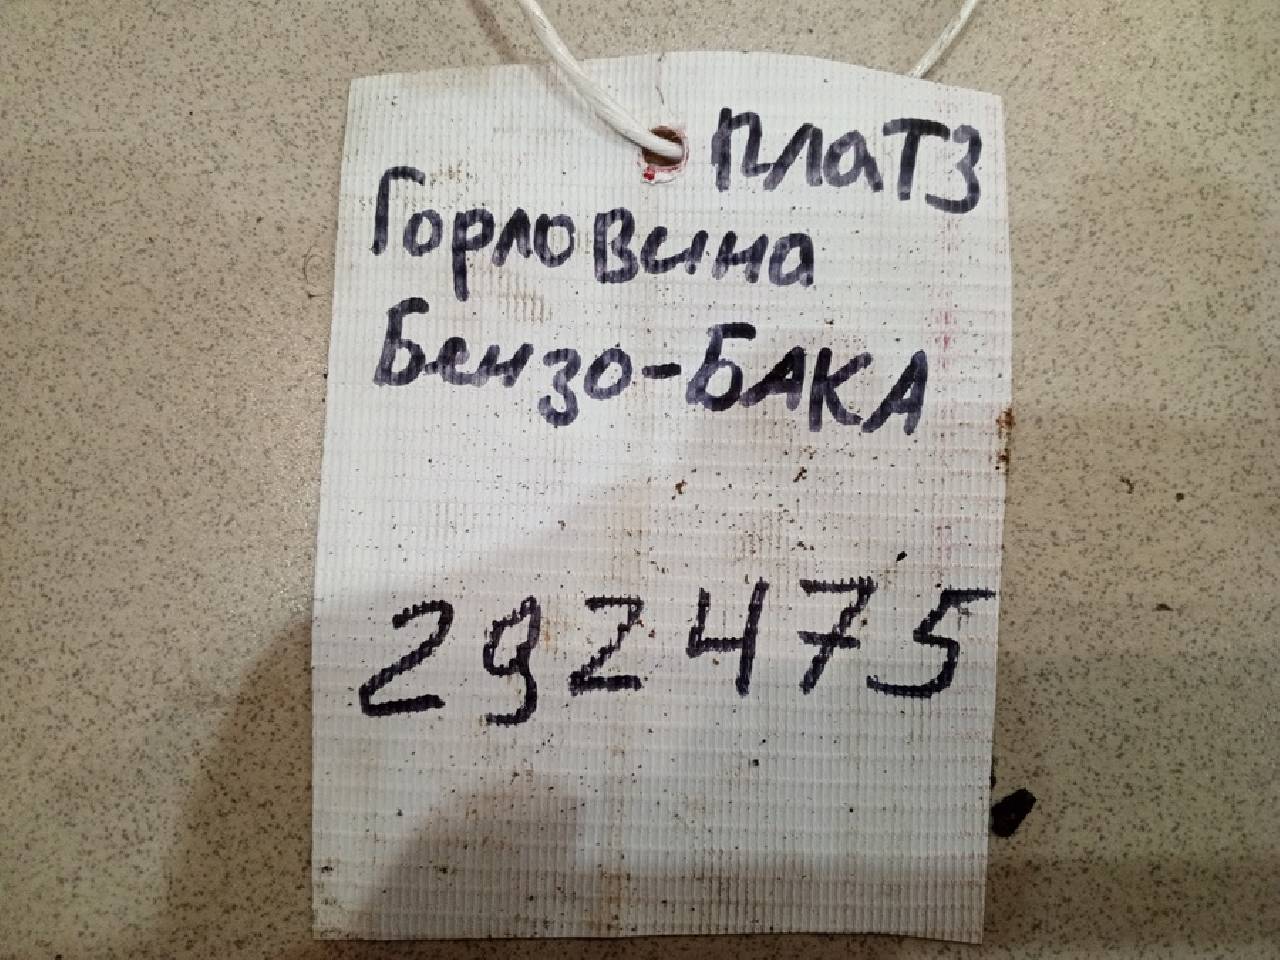 ПлаТз
Горловина
Бензо-БАКА
292475